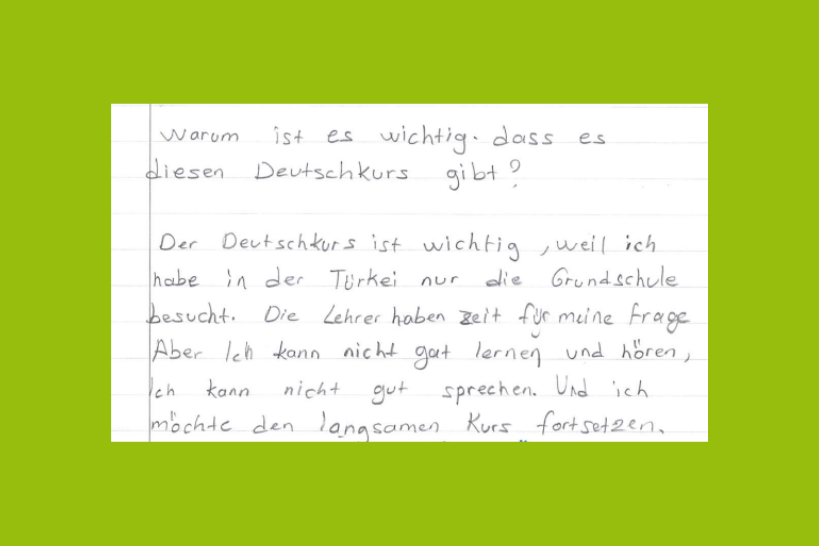 Warum ist es wichtig. dass es
diesen Deutschkurs gibt?
Der Deutschkurs ist wichtig, weil ich
habe in der Türkei nur die Grundschule
besucht. Die Lehrer haben zeit für meine Frage
Aber Ich kann nicht gut lernen und hören,
Ich kann nicht gut sprechen. Und ich
möchte den langsamen Kurs fortsetzen.